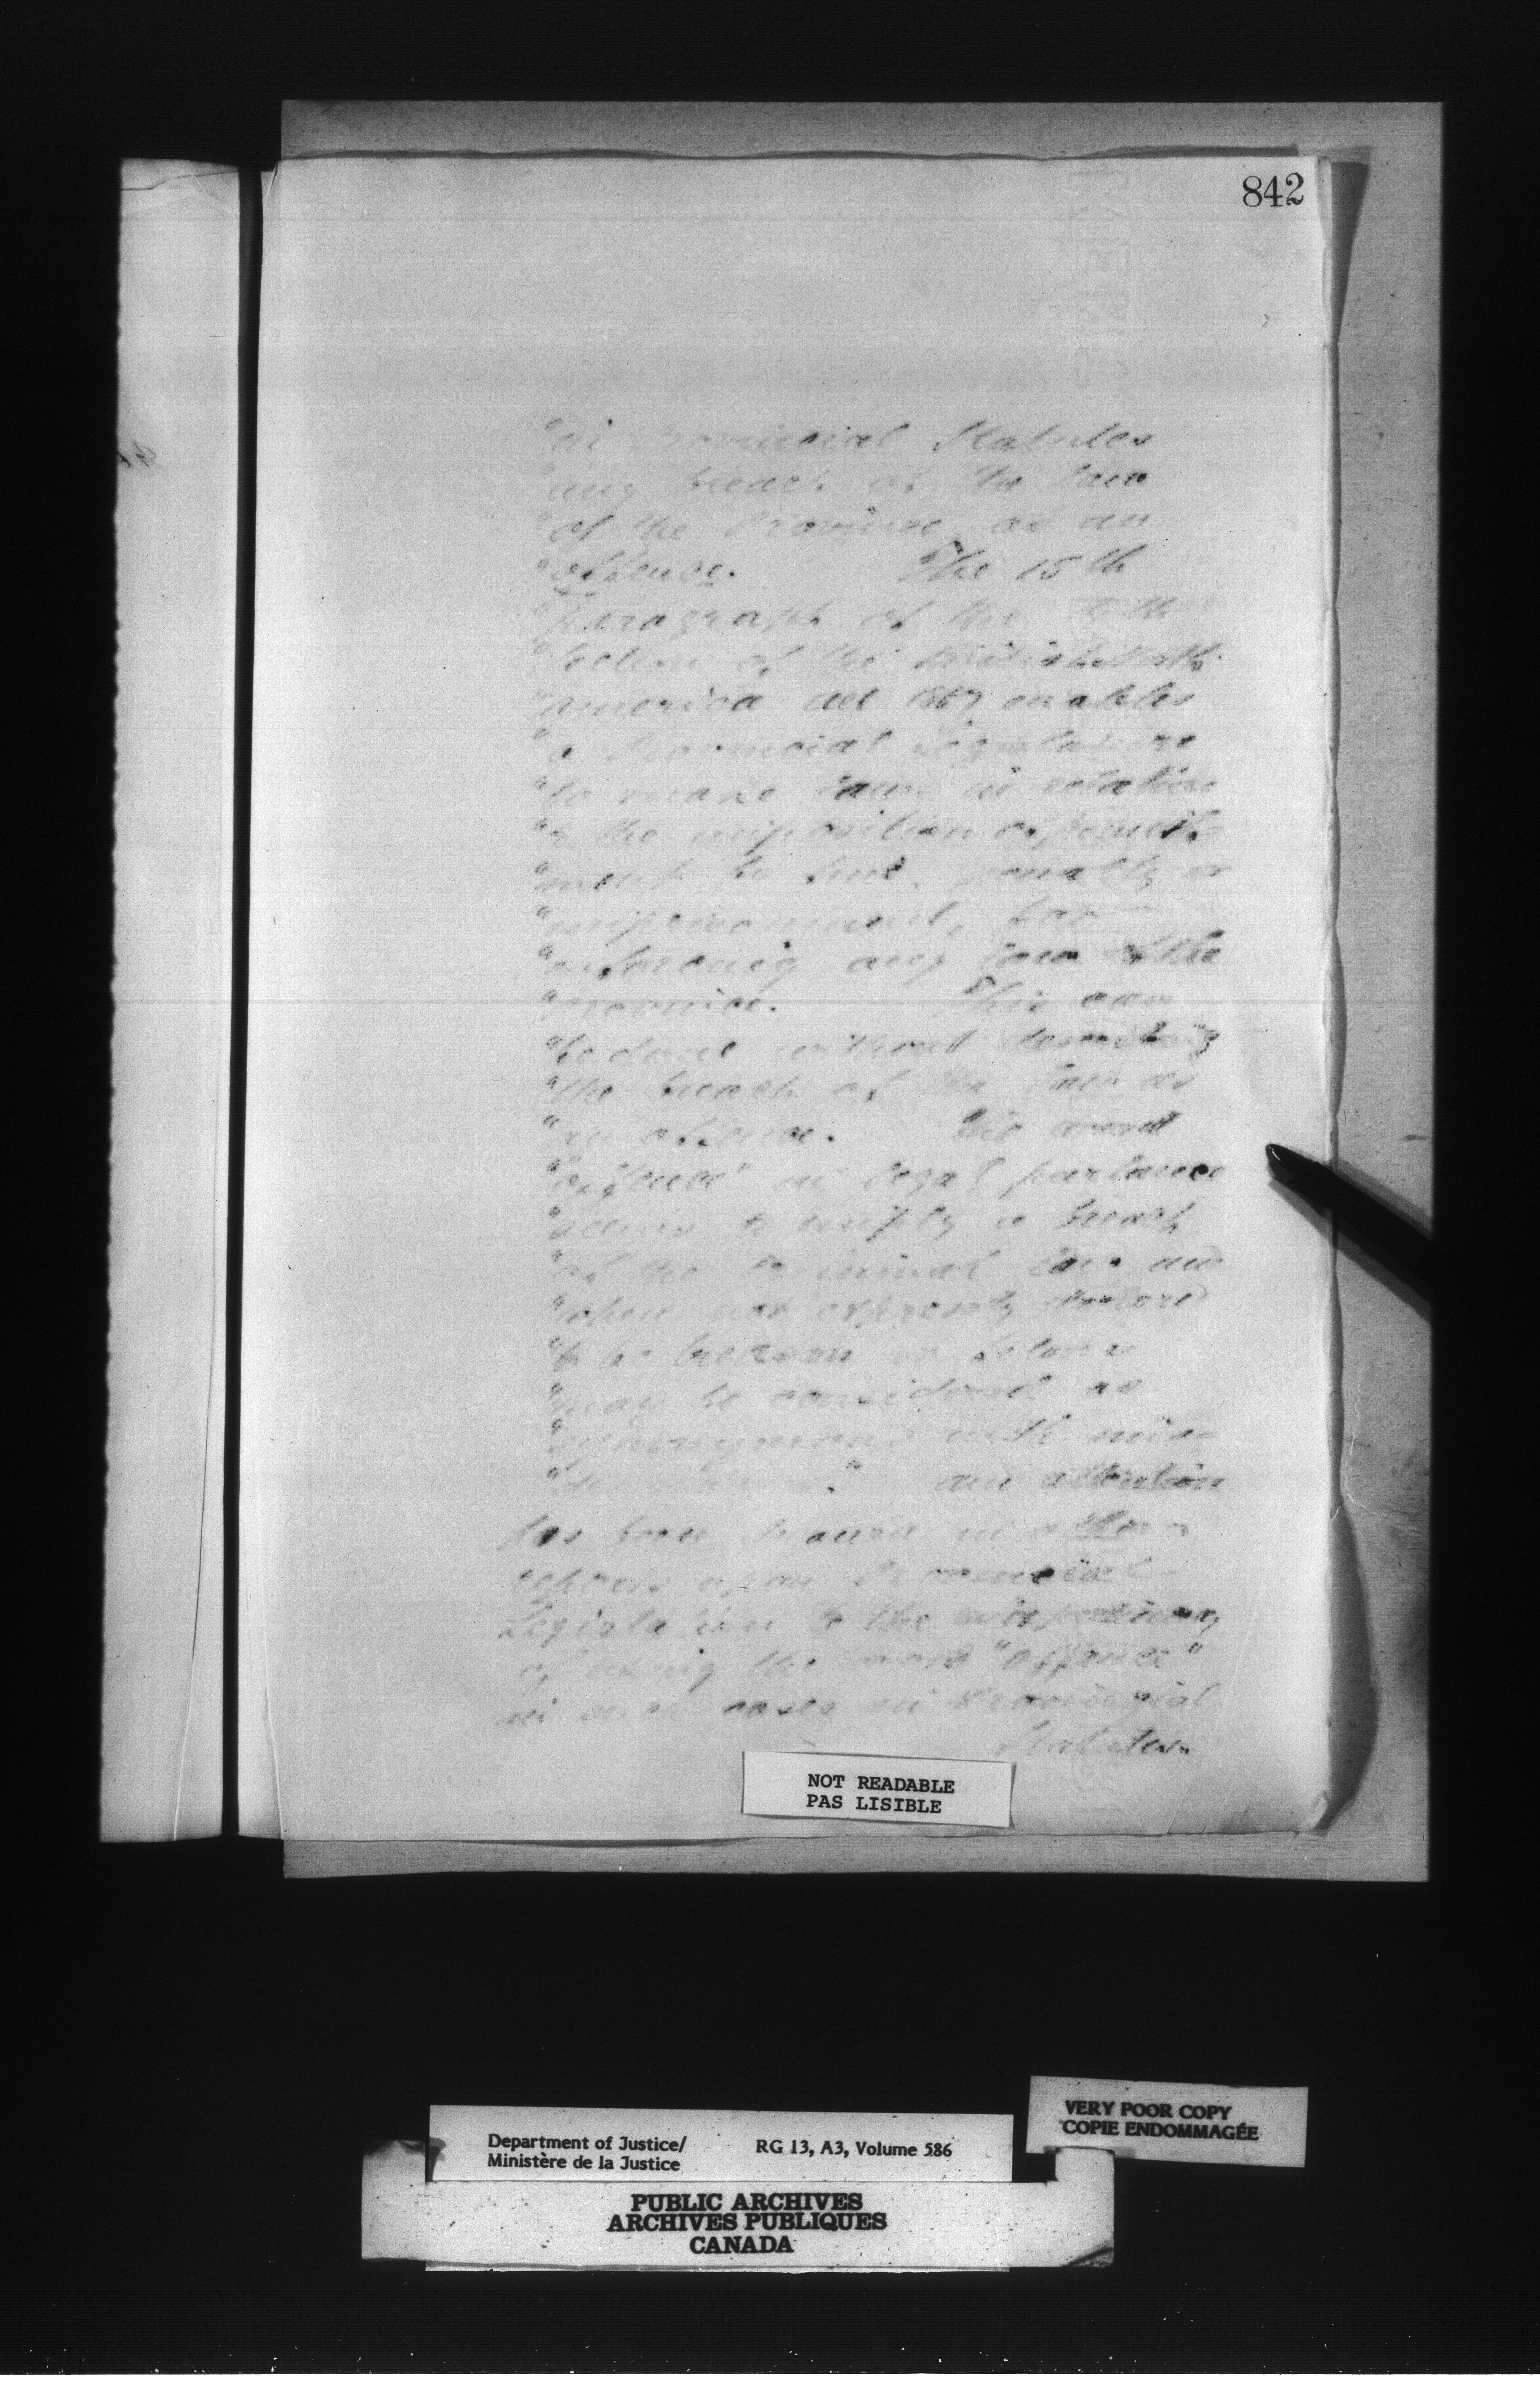 842
"in Provincial Statutes
"any breach of the law
"of the Province as an
"offence. The 15th
"Paragraph of the
"Section of the British North
"America Act 1867 enables
"a Provincial Legislature
"to make laws in relation
"to the imposition of punish-
"ment by fine, penalty or
"imprisonment, for
"enforcing any law of the
"province. This can
"be done without describing
"the breach of the law as
"an offence. The word
"'offence' in legal parlance
"seems to imply a breach
"of the Criminal law and
"when not expressly declared
"to be treason or felony
"may be considered as
"synonymous with mis-
"demeanor." and attention
has been drawn in other
reports upon Provincial
Legislation to the
of using the word "offence"
in such cases in Provincial
Statutes.
NOT READABLE
PAS LISIBLE
VERY POOR COPY
COPIE ENDOMMAGÉE
Department of Justice/ RG 13, A3, Volume 586
Ministère de la Justice
PUBLIC ARCHIVES
ARCHIVES PUBLIQUES
CANADA